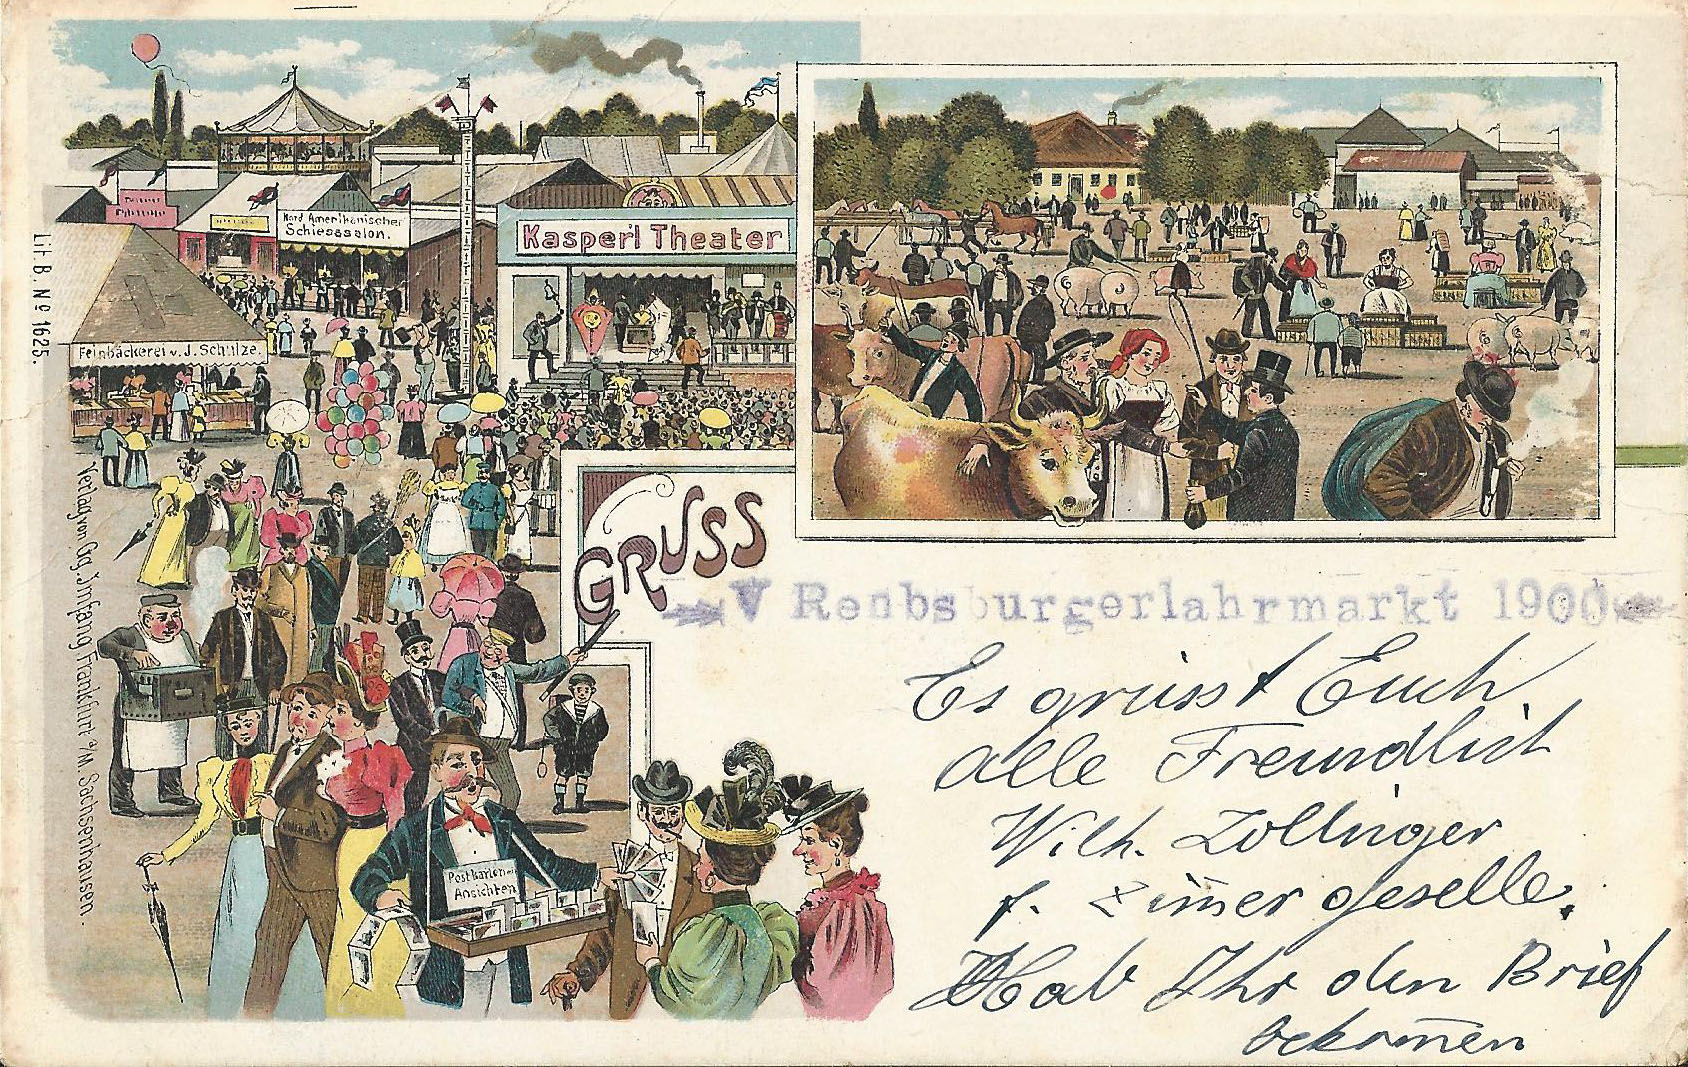 Nord Amerikanischer
Schiesssalon.
Kasperl Theater
Feinbäckerei v. J. Schulze.
Lit B. No 1625.
Verlag von Gg. Jmfang, Frankfurt a/M. Sachsenhausen.
GRUSS
V Rendsburgerlahrmarkt 1900
Es grüsst Euch
alle Freundlich
Wilh. Zollinger
f. Zim̄er geselle.
Hab Ihr den Brief
bekom̄en
Postkarten mit
Ansichten